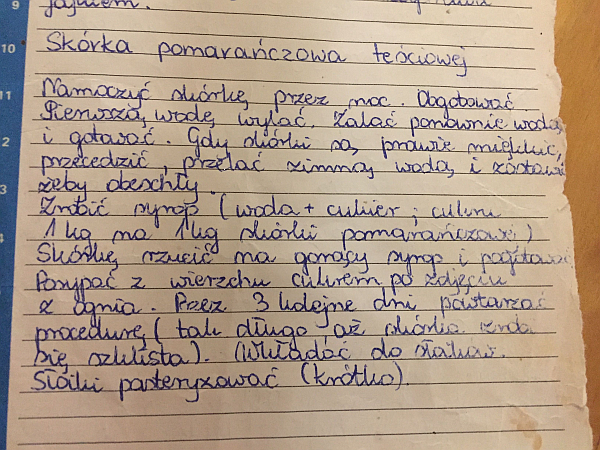 9
jajkiem.
10
Skórka pomarańczowa teściowej
11
Namoczyć skórkę przez noc. Obgotować.
Pierwszą wodę wylać. Zalać ponownie wodą
2
i gotować. Gdy skórki są prawie miękkie,
przecedzić, przelać zimną wodą i zostawić
3
żeby obeschły.
Zrobić syrop (woda + cukier; cukru
1 kg na 1 kg skórki pomarańczowej)
Skórkę rzucić na gorący syrop i pogotować
Posypać z wierzchu cukrem po zdjęciu
z ognia. Przez 3 kolejne dni powtarzać
procedurę (tak długo aż skórka zrobi
się szklista). Wkładać do słoików.
Słoiki pasteryzować (krótko).